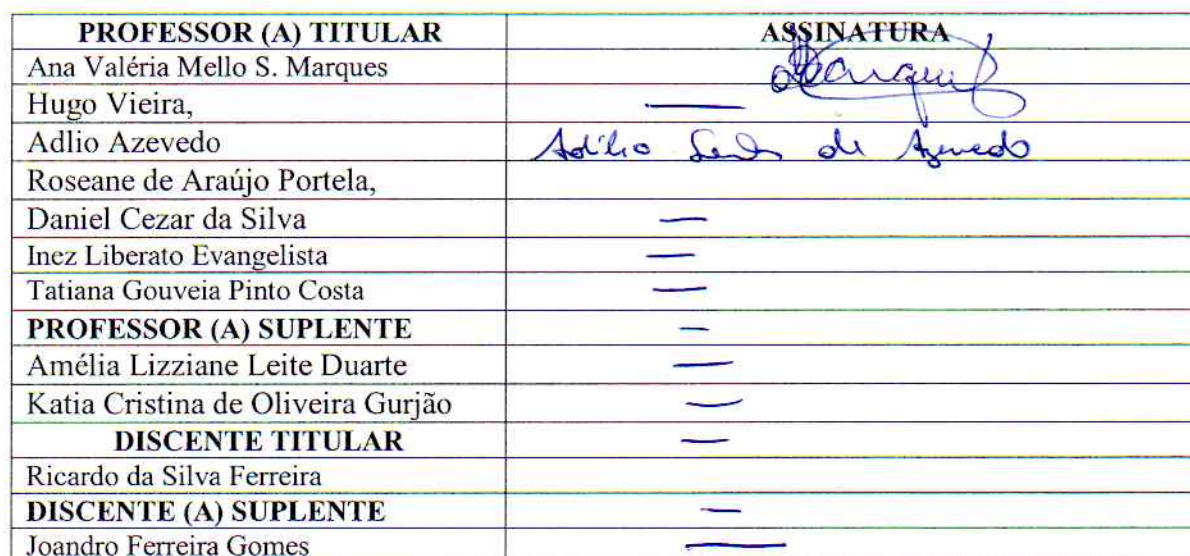 PROFESSOR (A) TITULAR ASSINATURA
Ana Valéria Mello S. Marques
Hugo Vieira, —
Adlio Azevedo Adílio de Azevedo
Roseane de Araújo Portela,
Daniel Cezar da Silva —
Inez Liberato Evangelista —
Tatiana Gouveia Pinto Costa —
PROFESSOR (A) SUPLENTE —
Amélia Lizziane Leite Duarte —
Katia Cristina de Oliveira Gurjão —
DISCENTE TITULAR —
Ricardo da Silva Ferreira
DISCENTE (A) SUPLENTE —
Joandro Ferreira Gomes —